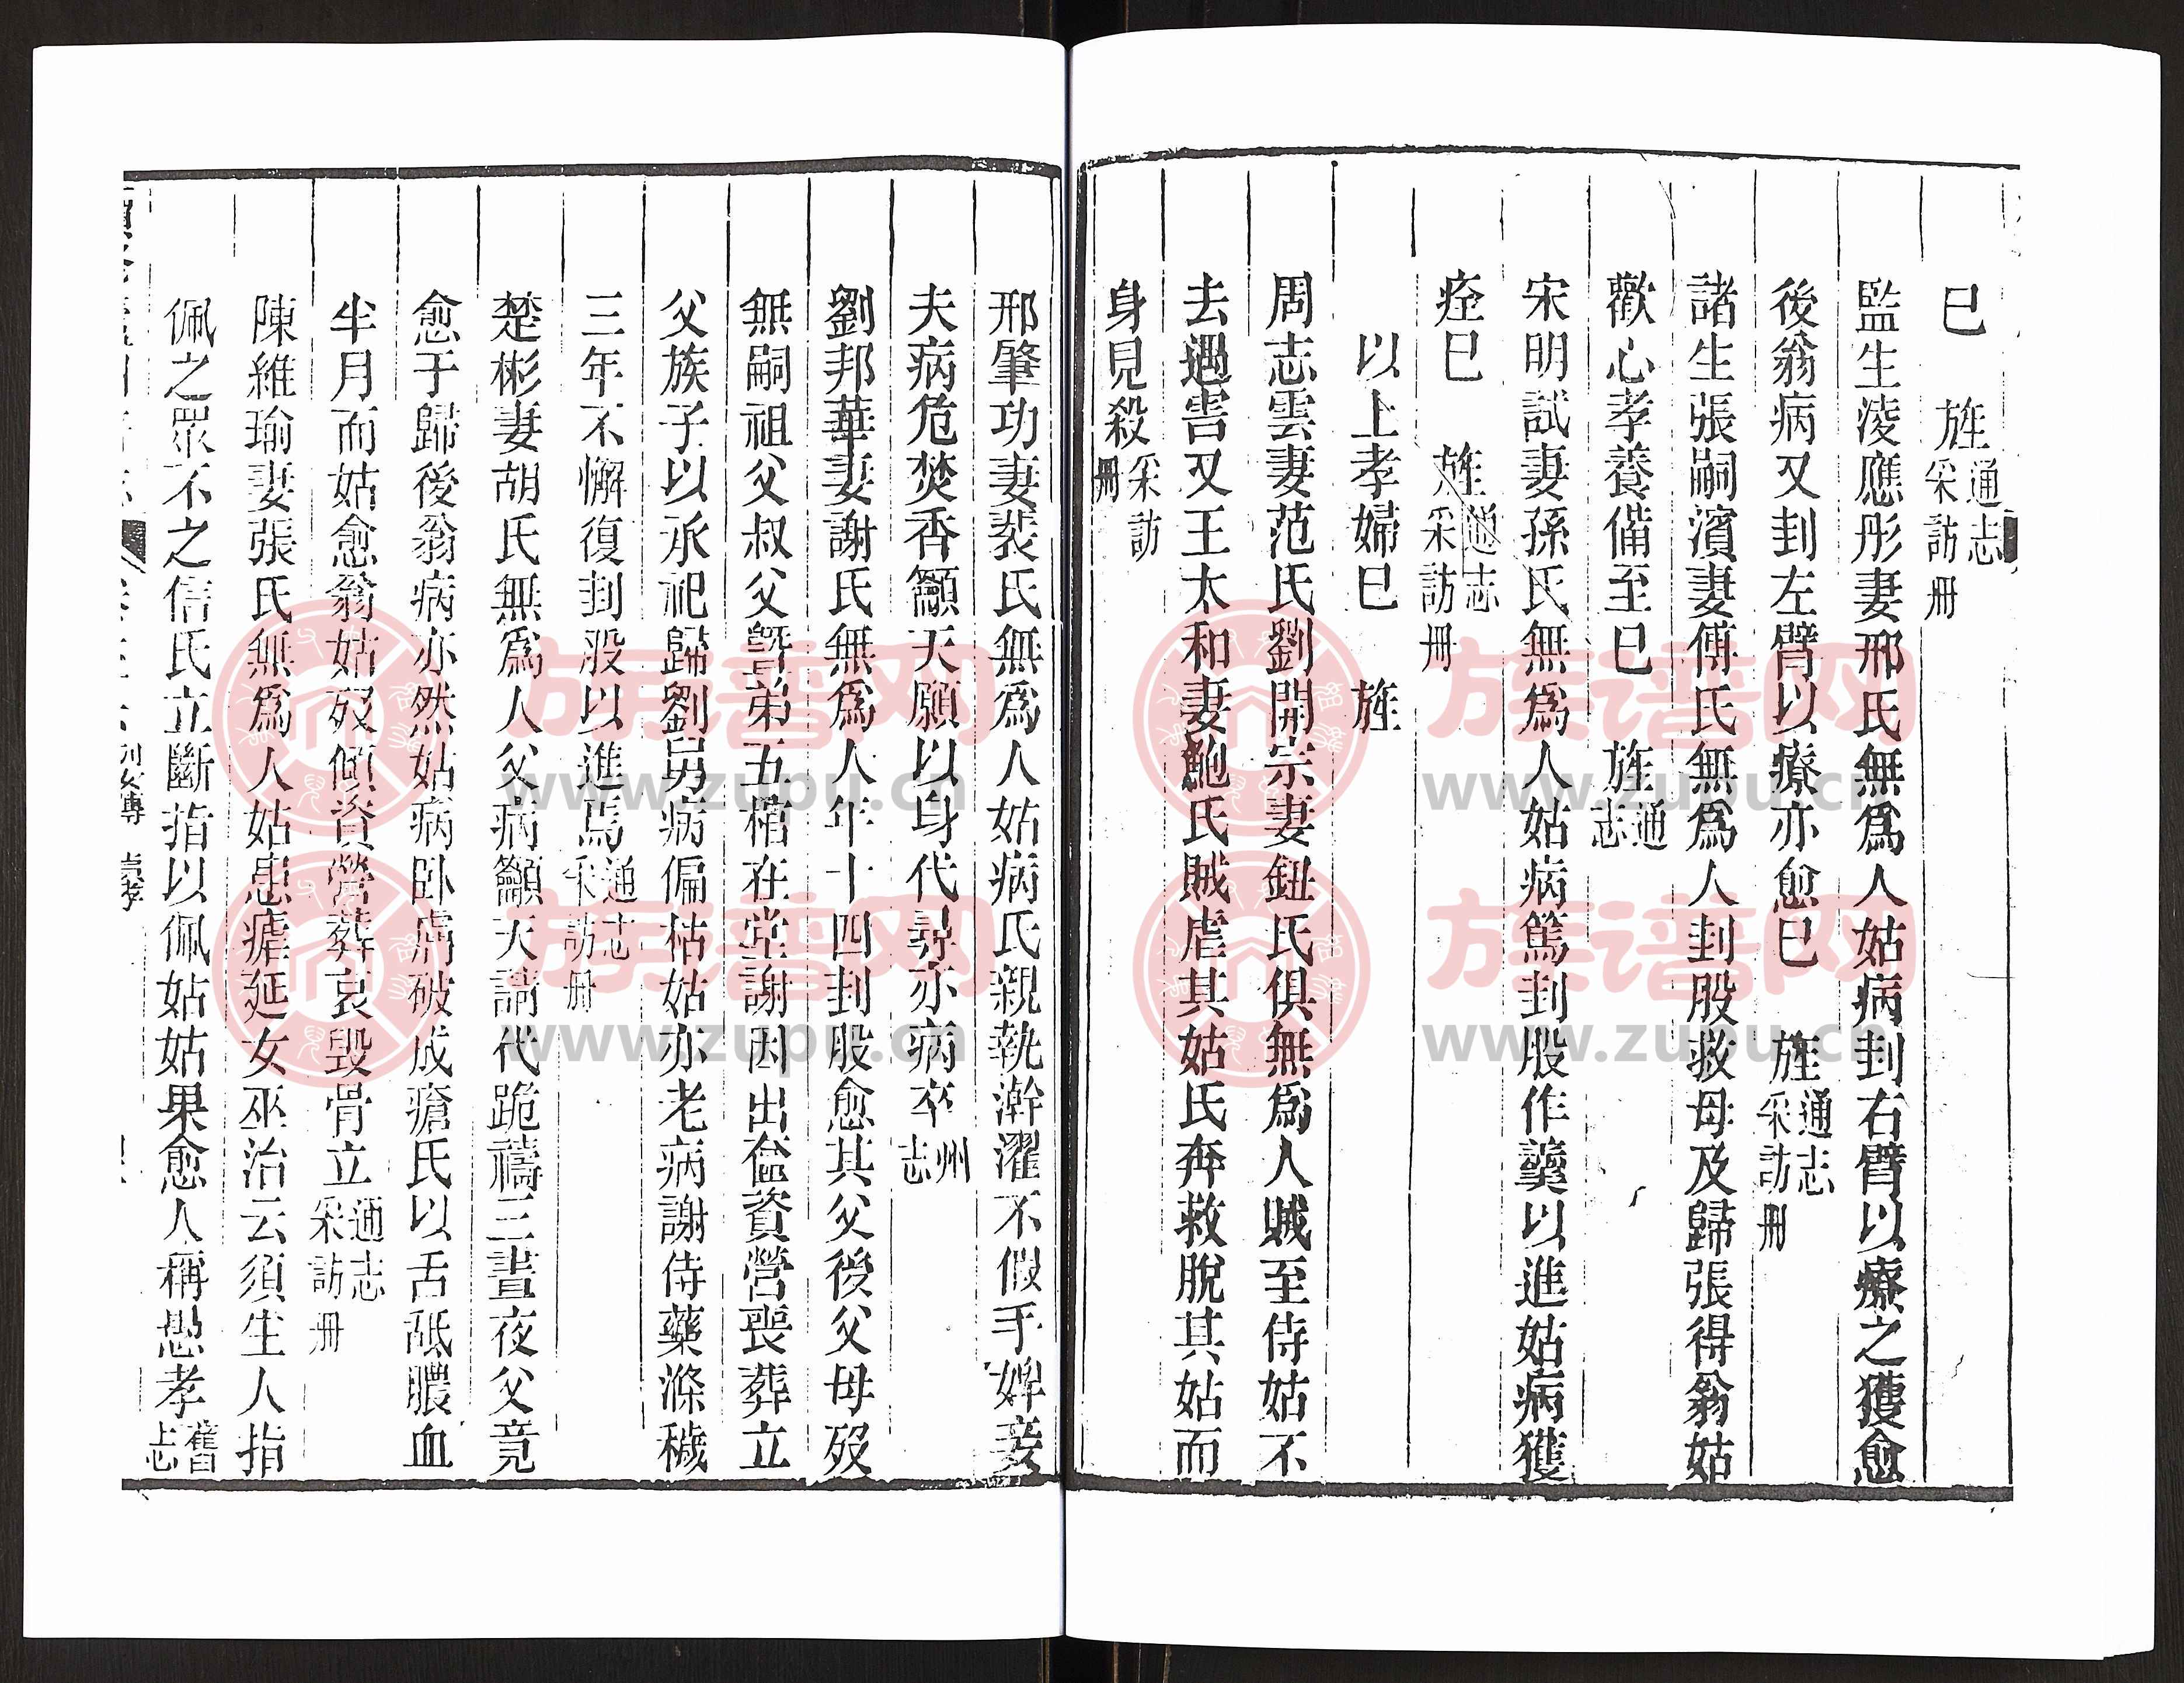 巳　旌通志采訪冊
監生淩應彤妻邢氏無爲人姑病刲右臂以療之獲愈
後翁病又刲左臂以療亦愈巳　旌通志采訪冊
諸生張嗣濱妻傅氏無爲人刲股救母及歸張得翁姑
歡心孝養備至巳　旌通志
宋明試妻孫氏無爲人姑病篤刲股作羹以進姑病獲
痊巳　旌通志采訪冊
以上孝婦巳　旌
周志雲妻范氏劉開宗妻鈕氏俱無爲人賊至侍姑不
去遇害又王太和妻鮑氏賊虐其姑氏奔救脫其姑而
身見殺采訪冊
邢肇功妻裴氏無爲人姑病氏親執澣濯不假手婢妾
夫病危焚香籲天願以身代尋亦病卒州志
劉邦華妻謝氏無爲人年十四刲股愈其父後父母歿
無嗣祖父叔父曁弟五棺在堂謝因出奩資營喪葬立
父族子以承祀歸劉舅病偏枯姑亦老病謝侍藥滌穢
三年不懈復刲股以進焉通志采訪冊
楚彬妻胡氏無爲人父病籲天請代跪禱三晝夜父竟
愈于歸後翁病亦然姑病卧膚破成瘡氏以舌舐膿血
半月而姑愈翁姑歿傾資營葬哀毀骨立通志采訪冊
陳維瑜妻張氏無爲人姑患瘧延女巫治云須生人指
佩之眾不之信氏立斷指以佩姑姑果愈人稱愚孝舊志
列女傳
族谱网
www.zupu.cn
族谱网
www.zupu.cn
族谱网
www.zupu.cn
族谱网
www.zupu.cn